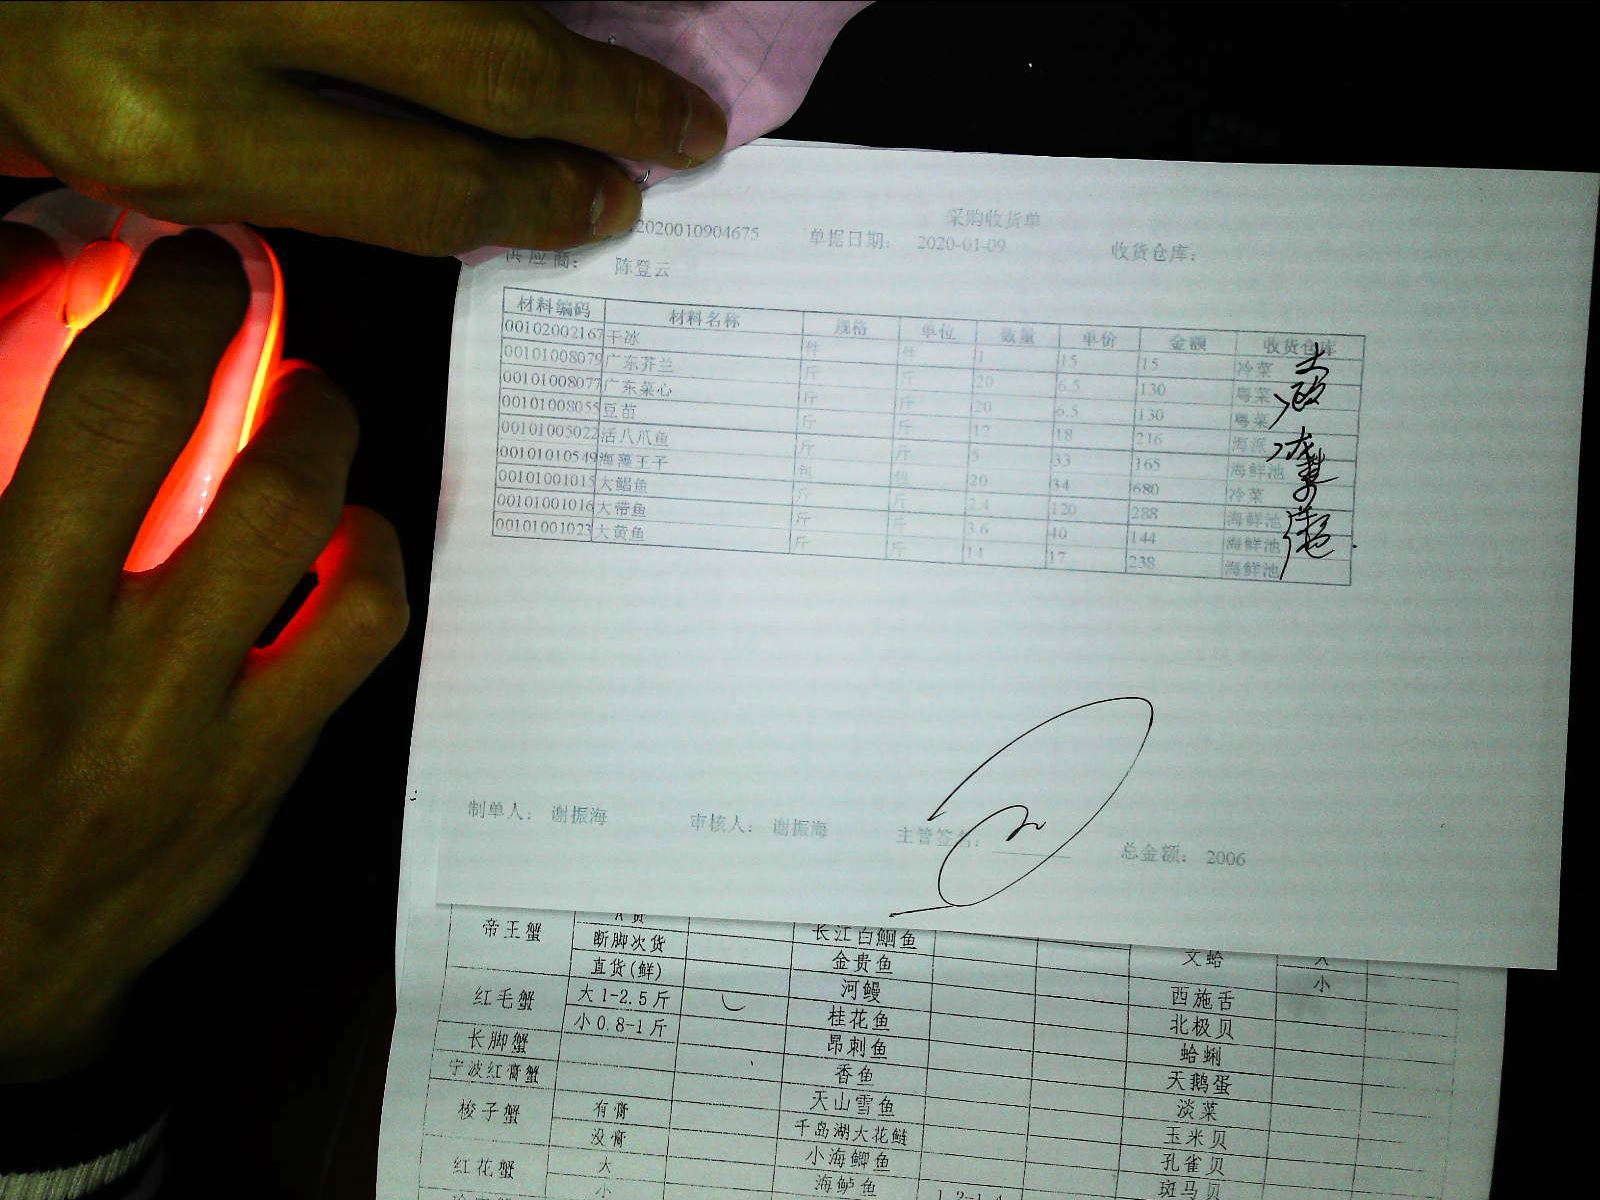 采购收货单
2020010904675 单据日期： 2020-01-09 收货仓库：
供应商： 陈登云
材料编码 材料名称 规格 单位 数量 单价 金额 收货仓库
00102002167 干冰 件 件 1 15 15 冷菜
00101008079 广东芥兰 斤 斤 20 6.5 130 粤菜
00101008077 广东菜心 斤 斤 20 6.5 130 粤菜
00101008055 豆苗 斤 斤 12 18 216 海派
00101005022 活八爪鱼 斤 斤 5 33 165 海鲜池
00101010549 海藻王子 包 包 20 34 680 冷菜
00101001015 大鲳鱼 斤 斤 2.4 120 288 海鲜池
00101001016 大带鱼 斤 斤 3.6 40 144 海鲜池
00101001023 大黄鱼 斤 斤 14 17 238 海鲜池
制单人： 谢振海 审核人： 谢振海 主管签名： 总金额： 2006
帝王蟹
断脚次货 长江白鮰鱼
直货(鲜) 金贵鱼 文蛤
红毛蟹 大1-2.5斤 河鳗 西施舌 小
小0.8-1斤 桂花鱼 北极贝
长脚蟹 昂刺鱼 蛤蜊
宁波红膏蟹 香鱼 天鹅蛋
梭子蟹 有膏 天山雪鱼 淡菜
没膏 千岛湖大花鲢 玉米贝
红花蟹 大 小海鲫鱼 孔雀贝
小 海鲈鱼 斑马贝